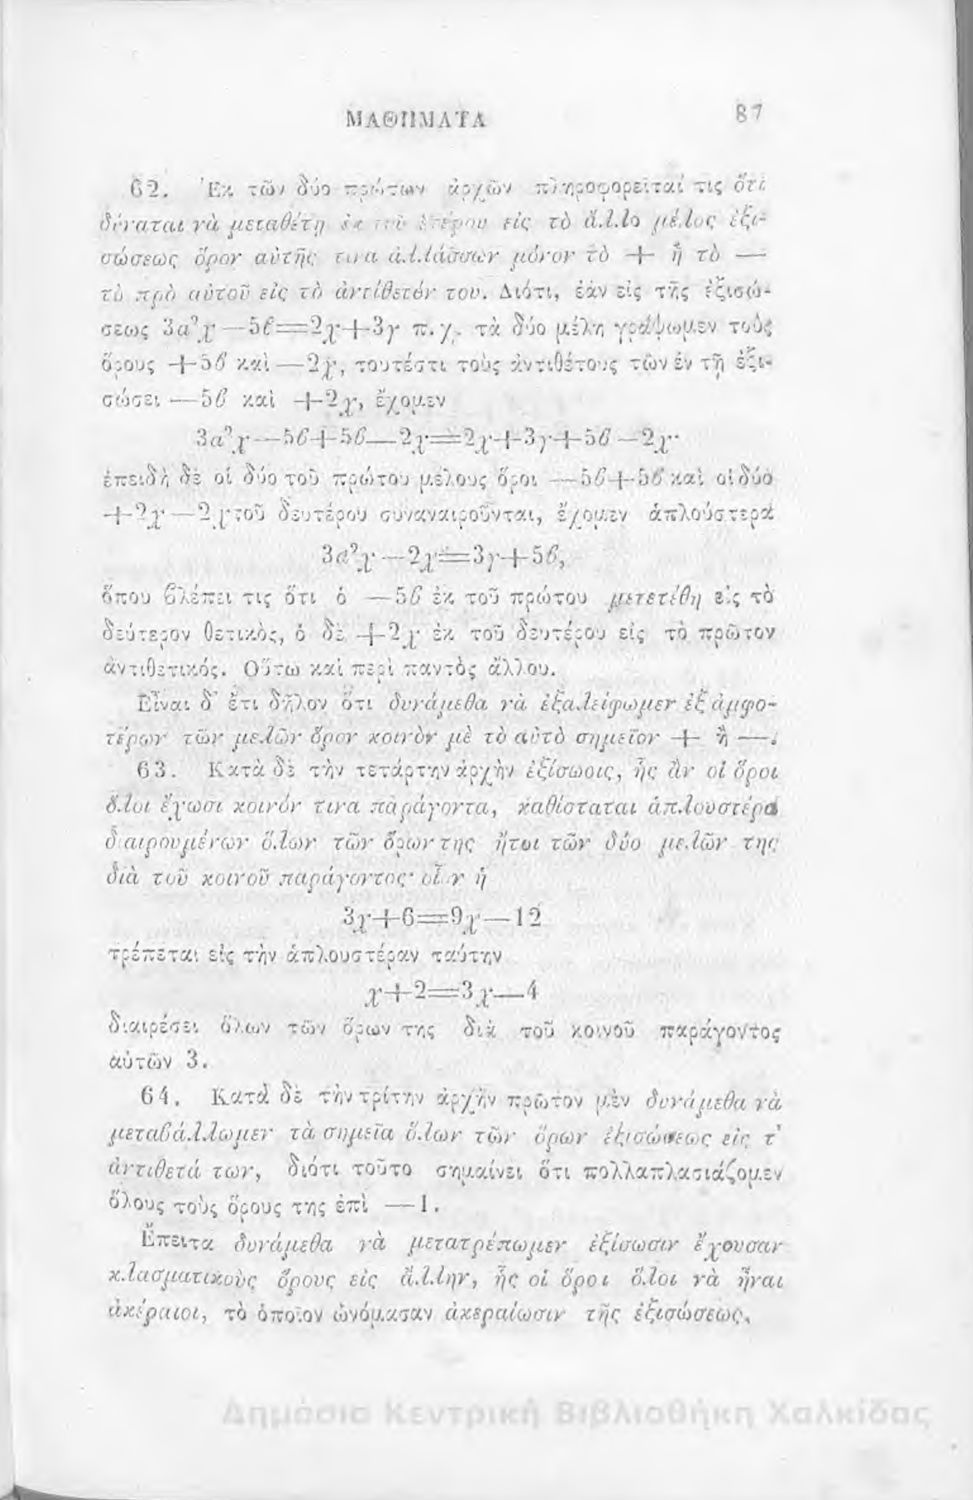 ΜΑΘΗΜΑΤΑ 87
62. Ἐκ τῶν δύο πρώτων ἀρχῶν πληροφορεῖταί τις ὅτι
δύναται νὰ μεταθέτῃ ἐκ τοῦ ἑτέρου εἰς τὸ ἄλλο μέλος ἐξι-
σώσεως ὅρον αὐτῆς τινα ἀλλάσσων μόνον τὸ + ἢ τὸ —
τὸ πρὸ αὐτοῦ εἰς τὸ ἀντίθετόν του. Διότι, ἐὰν εἰς τῆς ἐξισώ-
σεως 3α²χ—5β=2χ+3γ π.χ. τὰ δύο μέλη γράψωμεν τοὺς
ὅρους +5β καὶ —2χ, τουτέστι τοὺς ἀντιθέτους τῶν ἐν τῇ ἐξι-
σώσει —5β καὶ +2χ, ἔχομεν
3α²χ—5β+5β—2χ=2χ+3γ+5β—2χ·
ἐπειδὴ δὲ οἱ δύο τοῦ πρώτου μέλους ὅροι —5β+5β καὶ οἱ δύο
+2χ—2χ τοῦ δευτέρου συναναιροῦνται, ἔχομεν ἁπλούστερα
3α²χ—2χ=3γ+5β,
ὅπου βλέπει τις ὅτι ὁ —5β ἐκ τοῦ πρώτου μετετέθη εἰς τὸ
δεύτερον θετικὸς, ὁ δὲ +2χ ἐκ τοῦ δευτέρου εἰς τὸ πρῶτον
ἀντιθετικός. Οὕτω καὶ περὶ παντὸς ἄλλου.
Εἶναι δ' ἔτι δῆλον ὅτι δυνάμεθα νὰ ἐξαλείφωμεν ἐξ ἀμφο-
τέρων τῶν μελῶν ὅρον κοινὸν μὲ τὸ αὐτὸ σημεῖον + ἢ —.
63. Κατὰ δὲ τὴν τετάρτην ἀρχὴν ἐξίσωσις, ἧς ἂν οἱ ὅροι
ὅλοι ἔχωσι κοινόν τινα παράγοντα, καθίσταται ἁπλουστέρα
διαιρουμένων ὅλων τῶν ὅρων της ἤτοι τῶν δύο μελῶν της
διὰ τοῦ κοινοῦ παράγοντος· οἷον ἡ
3χ+6=9χ—12
τρέπεται εἰς τὴν ἁπλουστέραν ταύτην
χ+2=3χ—4
διαιρέσει ὅλων τῶν ὅρων της διὰ τοῦ κοινοῦ παράγοντος
αὐτῶν 3.
64. Κατὰ δὲ τὴν τρίτην ἀρχὴν πρῶτον μὲν δυνάμεθα νὰ
μεταβάλλωμεν τὰ σημεῖα ὅλων τῶν ὅρων ἐξισώσεως εἰς τ'
ἀντιθετά των, διότι τοῦτο σημαίνει ὅτι πολλαπλασιάζομεν
ὅλους τοὺς ὅρους της ἐπὶ —1.
Ἔπειτα δυνάμεθα νὰ μετατρέπωμεν ἐξίσωσιν ἔχουσαν
κλασματικοὺς ὅρους εἰς ἄλλην, ἧς οἱ ὅροι ὅλοι νὰ ἦναι
ἀκέραιοι, τὸ ὁποῖον ὠνόμασαν ἀκεραίωσιν τῆς ἐξισώσεως.
Δημόσια Κεντρική Βιβλιοθήκη Χαλκίδας